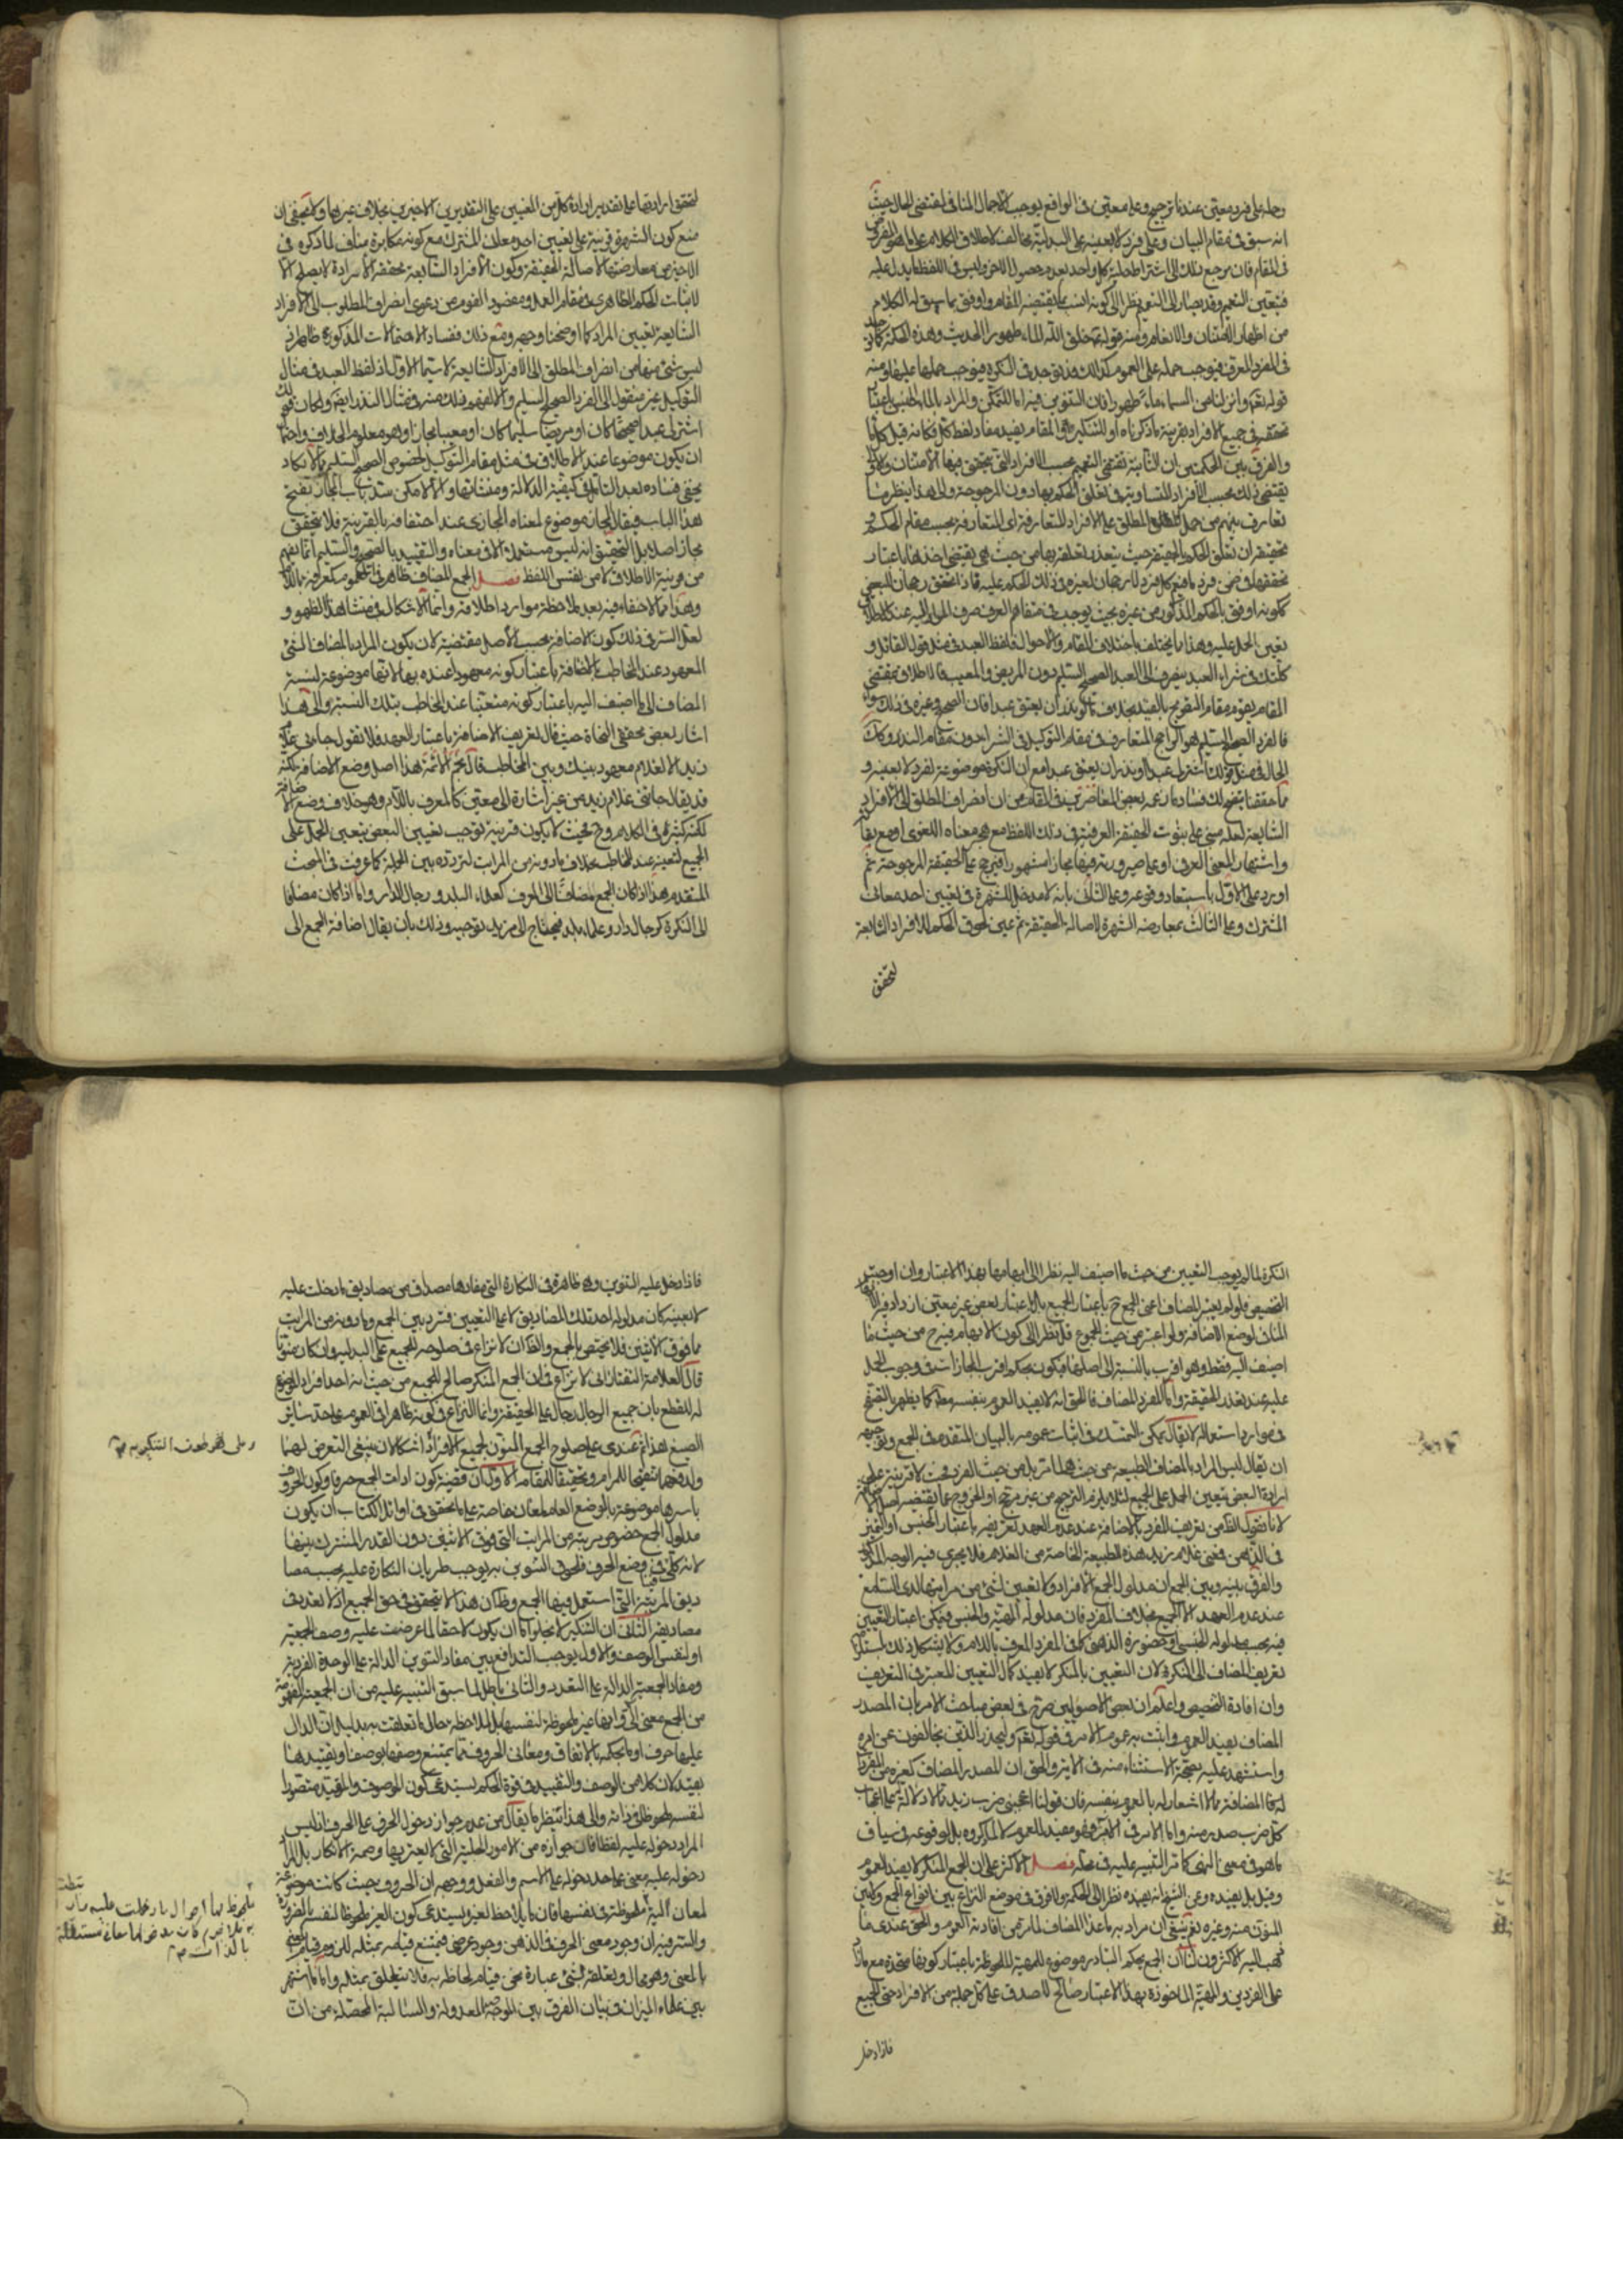 وحمله على فرد معين عندنا ترجيح وعلى معين في الواقع يوجب الاجمال المنافي لمقتضى الحال حيث
انه سبق في مقام البيان وعلى فرد لا بعينه على البدلية مخالف لاطلاق الكلام على ما هو المفروض
في المقام فان مرجع ذلك الى اشتراط كل واحد بعدم حصول الاخر وليس في اللفظ ما يدل عليه
فيتعين التعميم وقد يصار الى التعميم نظرا الى كونه انسب بما يقتضيه المقام واوفق بما سيق له الكلام
من اظهار الامتنان والانعام ومنه قوله خلق الله الماء طهورا الحديث وهذه الحكمة كما توجد
في المفرد المعرف فيوجب حمله على العموم كذلك قد توجد في النكرة فيوجب حملها عليه ومنه
قوله تعم وانزلنا من السماء ماء طهورا فان التنوين فيه اما للتمكن والمراد بالماء الجنس باعتبار
تحققه في جميع الافراد بقرينة ما ذكرناه او للتنكير والمقام يفيد مفاد لفظ كل فكانه قيل كل ماء
والفرق بين الحكمتين ان الثانية تقتضي التعميم بحسب الافراد التي يتحقق فيها الامتنان والاولى
يقتضي ذلك بحسب الافراد المتساوية في تعلق الحكم بها دون المرجوحة والى هذا ينظر ما
تعارف بينهم من حمل المطلق على الافراد المتعارفة اي المتعارفة بحسب مقام الحكم و
تحقيقه ان تعلق الحكم بالحقيقة حيث يتعذر تعلقه بها من حيث هي يقتضي اخذها باعتبار
تحققها في ضمن فرد ما فيعم كل فرد لا رجحان لغيره في ذلك الحكم عليه فاذا تحقق رجحان لبعض
لكونه اوفق بالحكم المذكور من غيره بحيث يوجب في متفاهم العرف صرف المراد اليه عند الاطلاق
تعين الحمل عليه وهذا مما يختلف باختلاف المقام والاحوال فلفظ العبد في مثل قول القائل و
كلتك في شراء العبد ينصرف الى العبد الصحيح السليم دون المريض والمعيب فالاطلاق بمقتضى
المقام يقوم مقام التصريح بالقيد بخلاف ما لو نذر ان يعتق عبدا فان الصحيح وغيره في ذلك سواء
فالفرد الصحيح السليم هو الراجح المتعارف في مقام التوكيل في الشراء دون مقام النذر وكك
الحال في مثل قولك اشتر لي عبدا او نذر ان يعتق عبدا مع ان النكرة موضوعة لفرد لا بعينه و
مما حققنا يتضح لك فساد ما زعمه بعض المعاصرين في المقام من ان انصراف المطلق الى الافراد
الشايعة لعله مبني على ثبوت الحقيقة العرفية في ذلك اللفظ مع هجر معناه اللغوي او مع بقائه
واشتهار المعنى العرفي او على صيرورته فيها مجازا مشهورا فيرجح على الحقيقة المرجوحة ثم
اورد على الاول باستبعاد وقوعه وعلى الثاني بانه لا مدخل للشهرة في تعيين احد معاني
المشترك وعلى الثالث بمعارضة الشهرة لاصالة الحقيقة ثم عين لحوق الحكم للافراد الشايعة
لتحقق
لتحقق ارادتها على تقدير ارادة كل من المعنيين على التقديرين الاخيرين بخلاف غيرها ولا يخفى ان
منع كون الشهرة قرينة على تعيين احد معاني المشترك مع كونه مكابرة مناف لما ذكره في
الاخير من معارضتها لاصالة الحقيقة وكون الافراد الشايعة محققة الارادة لا يصلح الا
لاثبات الحكم الظاهري في مقام العمل ومقصود القوم من دعوى انصراف المطلوب الى الافراد
الشايعة تعيين المراد كما اوضحنا وجهه ومع ذلك ففساد الاحتمالات المذكورة ظاهر اذ
ليس شئ منها من انصراف المطلق الى الافراد الشايعة لا سيما الاول اذ لفظ العبد في مثال
التوكيل غير منقول الى الفرد الصحيح السليم والا لفهم ذلك منه في مثال النذر ايضا ولكان قولك
اشتر لي عبدا صحيحا كان او مريضا سليما كان او معيبا مجازا وهو معلوم الخلاف واحتمال
ان يكون موضوعا عند الاطلاق في مثل مقام التوكيل لخصوص الصحيح السليم مما لا يكاد
يخفى فساده بعد التامل في كيفية الدلالة ومنشائها والا لامكن سد باب المجاز بفتح
هذا الباب فيقال المجاز موضوع لمعناه المجازي عند احتفافه بالقرينة فلا يتحقق
مجاز اصلا بل التحقيق انه ليس مستعملا الا في معناه والتقييد بالصحيح والسليم انما يفهم
من قرينة الاطلاق لا من نفس اللفظ فصل الجمع المضاف ظاهر في العموم كمعرفه باللام
وهذا مما لا خفاء فيه بعد ملاحظة موارد اطلاقه وانما الاشكال في منشا هذا الظهور و
لعل السر في ذلك كون الاضافة بحسب الاصل مقتضية لان يكون المراد بالمضاف الشئ
المعهود عند المخاطب بالاضافة باعتبار كونه معهودا عنده بها لانها موضوعة لنسبة
المضاف الى ما اضيف اليه باعتبار كونه متعينا عند المخاطب بتلك النسبة والى هذا
اشار بعض محققي النحاة حيث قال تعريف الاضافة باعتبار العهد فلا تقول جاءني غلام
زيد الا لغلام معهود بينك وبين المخاطب قال نجم الائمة هذا اصل وضع الاضافة لكنه
قد يقال جائني غلام زيد من غير اشارة الى معين كالمعرف باللام وهو خلاف وضع الاضافة
لكنه كثير في الكلام وح فحيث لا يكون قرينة توجب تعيين البعض يتعين الحمل على
الجميع لتعينه عند المخاطب بخلاف ما دونه من المراتب لتردده بين الجملة كما عرفت في المبحث
المتقدم هذا اذا كان الجمع مضافا الى المعرف كعلماء البلد ورجال الدار واما اذا كان مضافا
الى النكرة كرجال دار وعلماء بلد فيحتاج الى مزيد توجيه وذلك بان يقال اضافة الجمع الى
النكرة لما لم يوجب التعيين من حيث ما اضيف اليه نظرا الى ابهامها بهذا الاعتبار وان اوجبت
التخصيص فلو لم يعتبر المضاف اعني الجمع ح باعتبار الجميع بل باعتبار بعض غير معين ازداد فيه الابهام
المنافي لوضع الاضافة ولو اعتبر من حيث المجموع قل نظرا الى كون الابهام فيه ح من حيث ما
اضيف اليه فقط وهو اقرب بالنسبة الى اصلها فيكون بحكم اقرب المجازات في وجوب الحمل
عليه عند تعذر الحقيقة واما المفرد المضاف فالحق انه لا يفيد العموم بنفسه مطلقا كما يظهر بالتصفح
في موارد استعماله لا يقال يمكن التمسك في اثبات عمومه بالبيان المتقدم في الجمع وتوجيهه
ان يقال ليس المراد بالمضاف الطبيعة من حيث هي لما مر بل من حيث الفرد فحيث لا قرينة على
ارادة البعض يتعين الحمل على الجميع لئلا يلزم الترجيح من غير مرجح او الخروج عما يقتضيه اصل الاضافة
لانا نقول الظ من تعريف المفرد بالاضافة عند عدم العهد تعريفه باعتبار الجنس او التميز
في الذهن فمعنى غلام زيد هذه الطبيعة الخاصة من الغلام فلا يجري فيه الوجه المذكور
والفرق بينه وبين الجمع ان مدلول الجمع الافراد ولا تعيين لشئ من مراتبها لدى السامع
عند عدم العهد الا الجميع بخلاف المفرد فان مدلوله الماهية والجنس فيمكن اعتبار التعيين
فيه بحسب مدلوله الجنسي وحضوره الذهني كما في المفرد المعرف باللام ولا يشكل ذلك باستلزام
تعريف المضاف الى النكرة لان التعيين بالمنكر لا يفيد كمال التعيين المعتبر في التعريف
وان افاده التخصيص واعلم ان بعض الاصوليين صرح في بعض مباحث الامر بان المصدر
المضاف يفيد العموم واثبت به عموم الامر في قوله تعم وليحذر الذين يخالفون عن امره
واستشهد عليه بصحة الاستثناء منه في الاية والحق ان المصدر المضاف كغيره من المفردات
المضافة مما لا اشعار له بالعموم بنفسه فان قولنا اعجبني ضرب زيد مما لا دلالة له على اعجاب
كل ضرب صدر منه واما الامر في الاية فهو مفيد للعموم لا لما ذكروه بل لوقوعه في سياق
ما هو في معنى النهي كما مر التنبيه عليه في محله فصل الاكثر على ان الجمع المنكر لا يفيد العموم
وقيل بل يفيده وعن الشيخ انه يفيده نظرا الى الحكمة ولا فرق في موضع النزاع بين انواع الجمع ولا بين
المنون منه وغيره نعم ينبغي ان يراد به ما عدا المضاف لما مر من افادته العموم والحق عندي ما
ذهب اليه الاكثرون لنا ان الجمع بحكم التبادر موضوع للمهية الملحوظة باعتبار كونها متحدة مع ما زاد
على الفردين والمهية الماخوذة بهذا الاعتبار صالح للصدق على كل جملة من الافراد حتى الجميع
فاذا دخل
فاذا دخل عليه التنوين وهي ظاهرة في النكارة التي مفادها مصداق من مصاديق ما دخلت عليه
لا بعينه كان مدلوله احد تلك المصاديق لا على التعيين فتردد بين الجمع وما دونه من المراتب
مما فوق الاثنين فلا يختص بالجميع والظ ان لا نزاع في صلوحه للجميع على البدلية وان كان منونا
قال العلامة التفتازاني لا نزاع في ان الجمع المنكر صالح للجميع من حيث انه احد افراد الموضوع
له للقطع بان جميع الرجال رجال على الحقيقة وانما النزاع في كونه ظاهرا في العموم على حد سائر
الصيغ هذا ثم عندي على صلوح الجمع المنون لجميع الافراد اشكالان ينبغي التعرض لهما
ولدفعهما تنقيحا للمرام وتحقيقا للمقام الاول ان قضية كون ادات الجمع حرفا وكون الحروف
باسرها موضوعة بالوضع العام لمعان خاصة على ما تحقق في اوائل الكتاب ان يكون
مدلول الجمع خصوص مرتبة من المراتب التي فوق الاثنين دون القدر المشترك بينها
لانه كلي في وضع الحرف فلحوق التنوين به يوجب طريان النكارة عليه بحسب مصا
ديق المرتبة التي استعمل فيها الجمع وظ ان هذا لا يتحقق في حق الجميع اذ لا تعدد في
مصاديقه الثاني ان التنكير لا يخلو اما ان يكون لاحقا لما عرضت عليه وصف الجمعية
او لنفس الوصف والاول يوجب التدافع بين مفاد التنوين الدالة على الوحدة الفردية
ومفاد الجمعية الدالة على التعدد والثاني باطل لما سبق التنبيه عليه من ان الجمعية المفهومة
من الجمع معنى آلي وانها غير ملحوظة لنفسها بل لملاحظة حال ما تعلقت به بدليل ان الدال
عليها حرف او ما بحكمه بالاتفاق ومعاني الحروف مما يمتنع وصفها بوصف او تقييدها
بقيد لان كلا من الوصف والتقييد في قوة الحكم يستدعي كون الموصوف والمقيد متصورا
لنفسه ملحوظا في ذاته والى هذا ننظر ما يقال من عدم جواز دخول الحرف على الحرف اذ ليس
المراد دخوله عليه لفظا فان جوازه من الامور الجلية التي لا يعتريها وصمة الانكار بل المراد
دخوله عليه معنى على حد دخوله على الاسم والفعل ووجهه ان الحروف حيث كانت موضوعة
لمعان آلية ملحوظة في نفسها فان ما يلاحظ لغيره يستدعي كون الغير ملحوظا لنفسه بالضرورة
والسر فيه ان وجود معنى الحرف في الذهن وجود عرضي فيمتنع قيامه بمثله للزوم قيام المعنى
بالمعنى وهو محال وتعلقه لشئ عبارة عن قيام لحاظه به فلا يتعلق بمثله واما ما اشتهر
بين علماء الميزان في بيان الفرق بين الموجبة المعدولة والسالبة المحصلة من ان